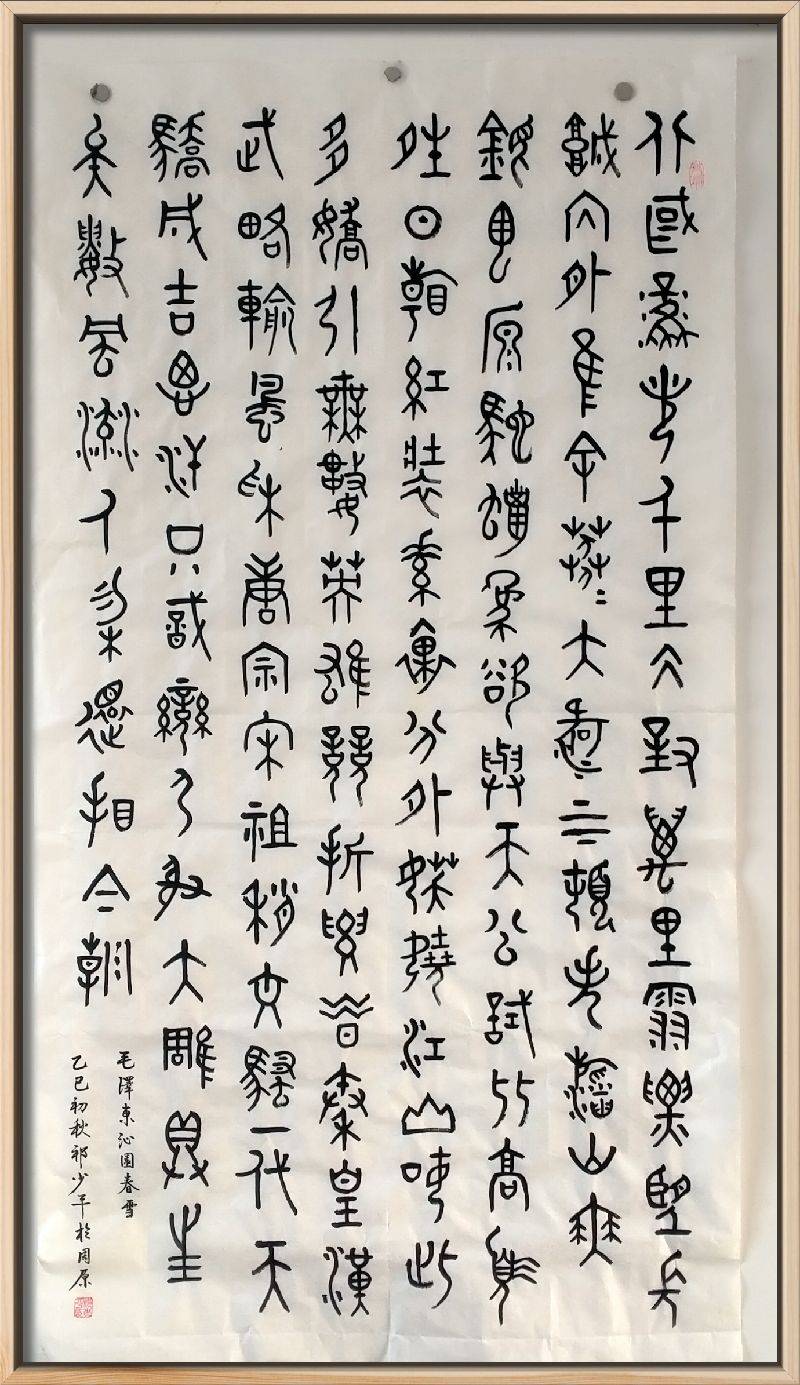 北國風光千里冰封萬里雪飄望長
城内外惟余莽〻大河〻上下頓失滔〻山舞
銀蛇原馳蠟象欲與天公試比高須
晴日看紅裝素裹分外妖嬈江山如此
多嬌引無數英雄競折腰惜秦皇漢
武略輸文采唐宗宋祖稍騷一代天
驕成吉思汗只識彎弓射大雕俱往
矣數風流人物還看今朝
毛澤東沁園春雪
乙巳初秋祁少平於周原